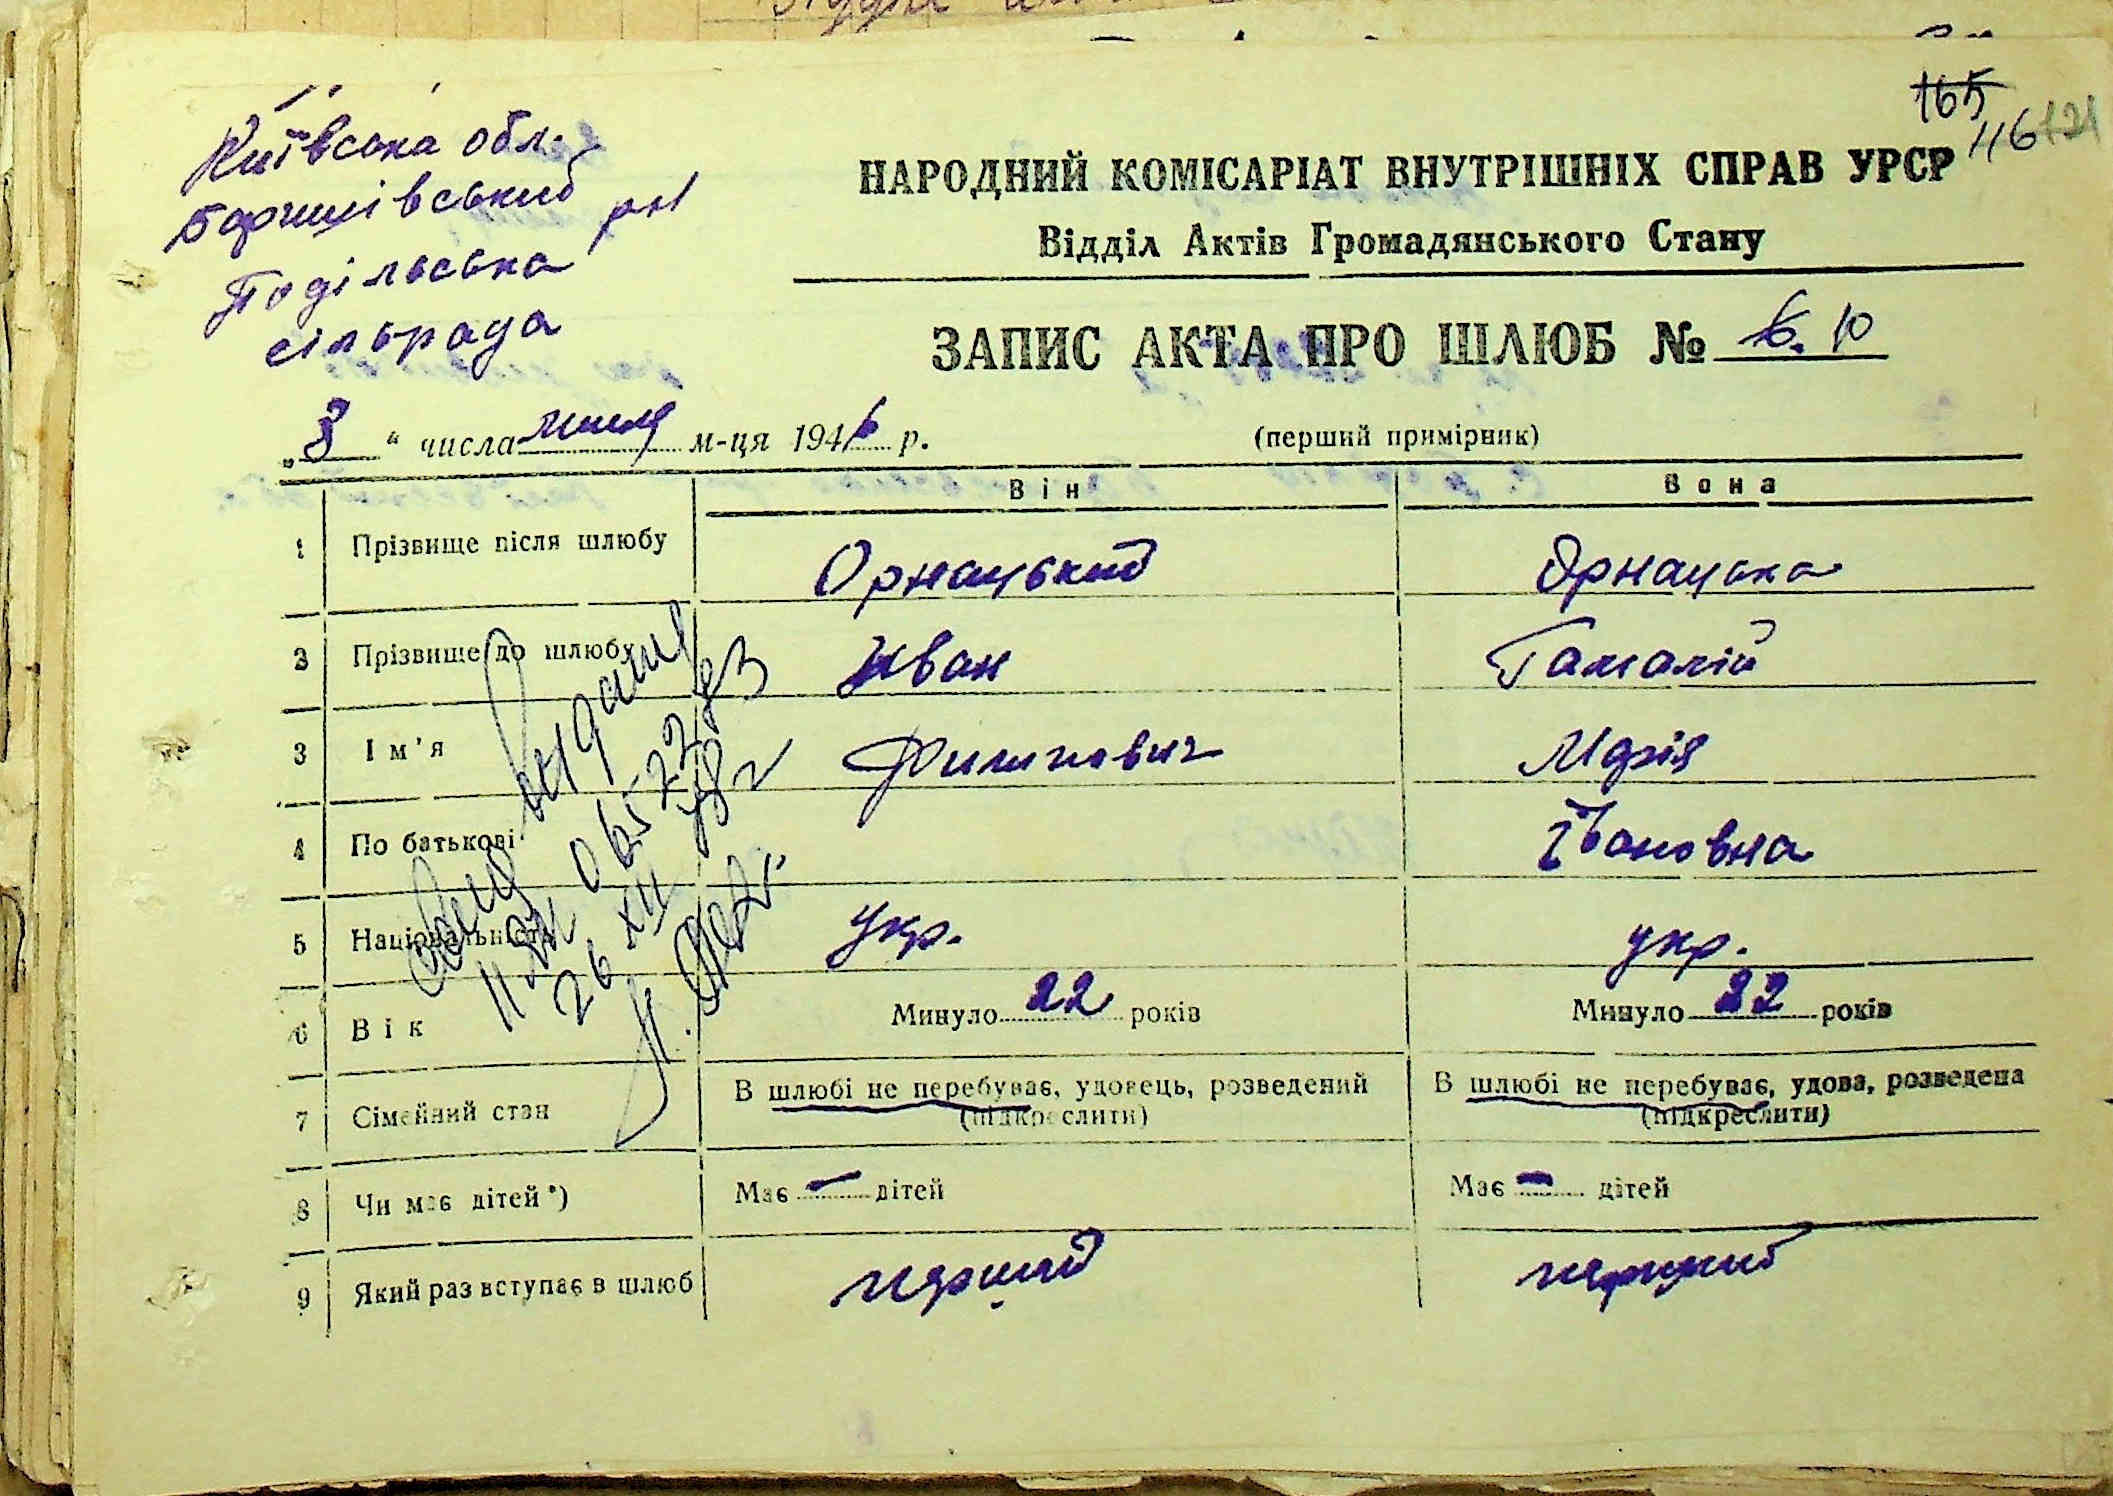 165
116
121
Київська обл.
Баришівський рн
Подільська
сільрада
НАРОДНИЙ КОМІСАРІАТ ВНУТРІШНІХ СПРАВ УРСР
Відділ Актів Громадянського Стану
ЗАПИС АКТА ПРО ШЛЮБ № 6. 10
„8“ числа липня м-ця 1946 р. (перший примірник)
Він Вона
1 Прізвище після шлюбу Орнацький Орнацька
2 Прізвище до шлюбу Иван Гамалій
3 Ім'я Филипович Марія
4 По батькові Івановна
5 Національність укр. укр.
6 Вік Минуло 22 років Минуло 22 років
7 Сімейний стан В шлюбі не перебуває, удовець, розведений В шлюбі не перебуває, удова, розведена
(підкреслити) (підкреслити)
8 Чи має дітей*) Має – дітей Має – дітей
9 Який раз вступає в шлюб перший перший
26 XII